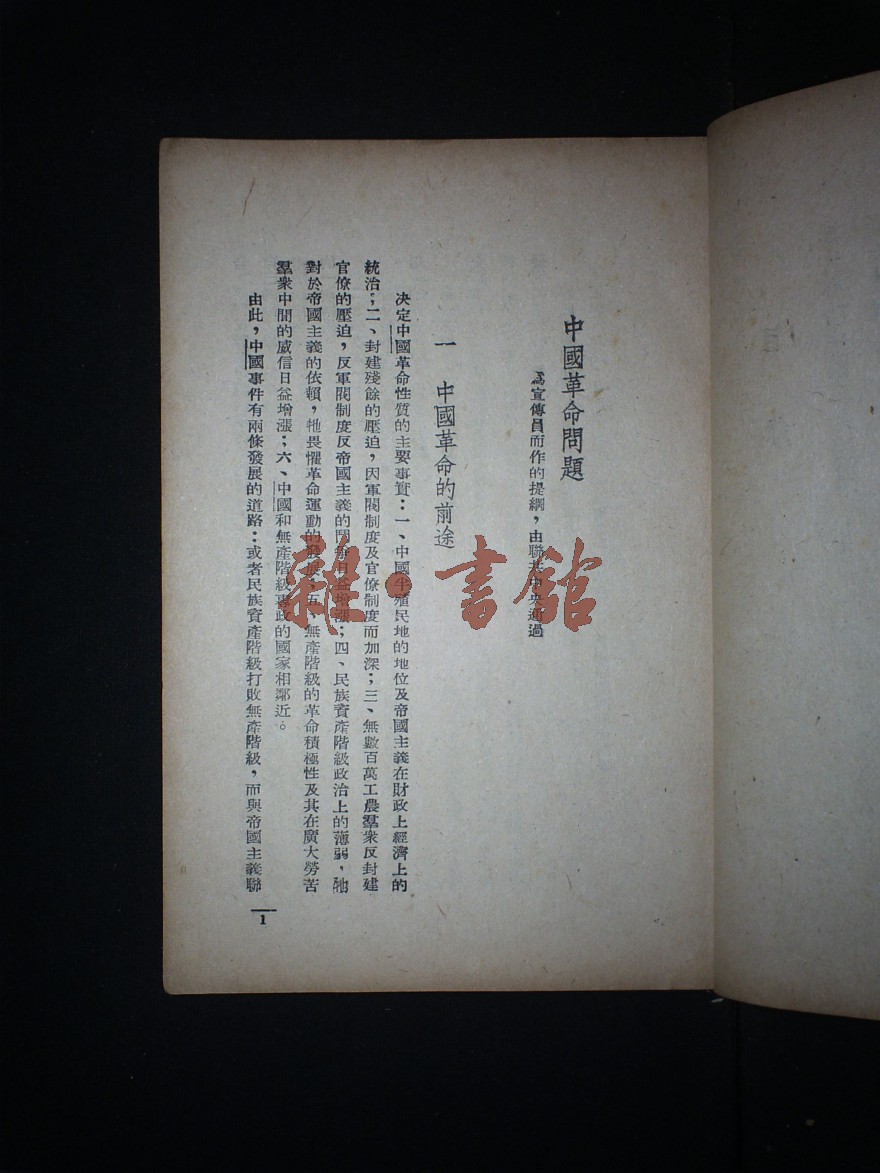 中國革命問題
為宣傳員而作的提綱，由聯共中央通過
一　中國革命的前途
決定中國革命性質的主要事實：一、中國半殖民地的地位及帝國主義在財政上經濟上的
統治；二、封建殘餘的壓迫，因軍閥制度及官僚制度而加深；三、無數百萬工農羣衆反封建
官僚的壓迫，反軍閥制度反帝國主義的鬥爭日益增漲；四、民族資產階級政治上的薄弱，牠
對於帝國主義的依賴，牠畏懼革命運動的發展；五、無產階級的革命積極性及其在廣大勞苦
羣衆中間的威信日益增漲；六、中國和無產階級專政的國家相鄰近。
由此，中國事件有兩條發展的道路：或者民族資產階級打敗無產階級，而與帝國主義聯
1
雜·書館